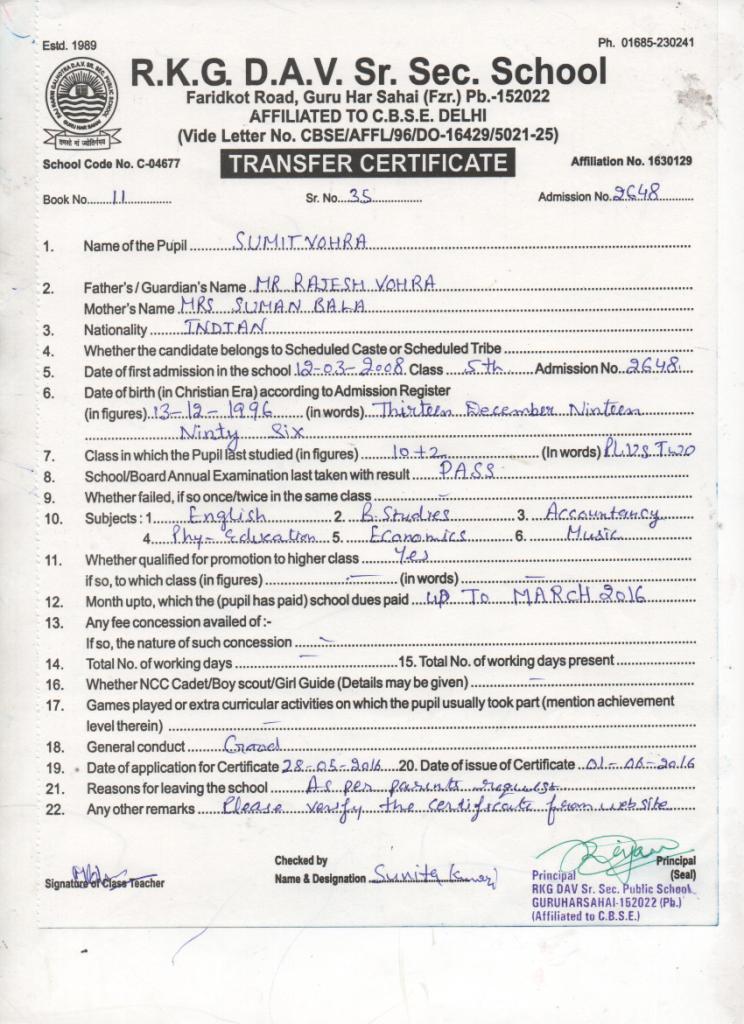 Estd. 1989
Ph. 01685-230241
R.K.G. D.A.V. Sr. Sec. School
Faridkot Road, Guru Har Sahai (Fzr.) Pb.-152022
AFFILIATED TO C.B.S.E. DELHI
(Vide Letter No. CBSE/AFFL/96/DO-16429/5021-25)
School Code No. C-04677 TRANSFER CERTIFICATE Affiliation No. 1630129
Book No. 11 Sr. No. 35 Admission No. 2648
1. Name of the Pupil SUMIT VOHRA
2. Father's / Guardian's Name MR RAJESH VOHRA
Mother's Name MRS SUMAN BALA
3. Nationality INDIAN
4. Whether the candidate belongs to Scheduled Caste or Scheduled Tribe
5. Date of first admission in the school 12-03-2008 Class 5th Admission No. 2648
6. Date of birth (in Christian Era) according to Admission Register
(in figures) 13-12-1996 (in words) Thirteen December Ninteen
Ninty Six
7. Class in which the Pupil last studied (in figures) 10+2 (In words) PLUS TWO
8. School/Board Annual Examination last taken with result PASS
9. Whether failed, if so once/twice in the same class –
10. Subjects : 1. English 2. B. Studies 3. Accountancy
4. Phy- Education 5. Economics 6. Music
11. Whether qualified for promotion to higher class Yes
if so, to which class (in figures) – (in words) –
12. Month upto, which the (pupil has paid) school dues paid UP TO MARCH 2016
13. Any fee concession availed of :-
If so, the nature of such concession –
14. Total No. of working days – 15. Total No. of working days present
16. Whether NCC Cadet/Boy scout/Girl Guide (Details may be given) –
17. Games played or extra curricular activities on which the pupil usually took part (mention achievement
level therein) –
18. General conduct Good
19. Date of application for Certificate 28-05-2016 20. Date of issue of Certificate 01-06-2016
21. Reasons for leaving the school As per parents request
22. Any other remarks Please verify the certificate from web site
Signature of Class Teacher
Checked by
Name & Designation Sunita Kumari
Principal
(Seal)
Principal
RKG DAV Sr. Sec. Public School
GURUHARSAHAI-152022 (Pb.)
(Affiliated to C.B.S.E.)